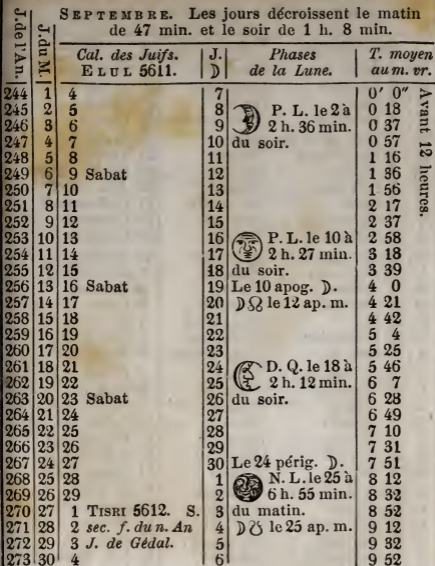 SEPTEMBRE. Les jours décroissent le matin
de 47 min. et le soir de 1 h. 8 min.
J. de l'An. J. du M. Cal. des Juifs. J. Phases T. moyen
ELUL 5611. ☽ de la Lune. au m. vr.
244 1 4 7 0' 0"
245 2 5 8 P. L. le 2 à 0 18
246 3 6 9 2 h. 36 min. 0 37
247 4 7 10 du soir. 0 57
248 5 8 11 1 16
249 6 9 Sabat 12 1 36
250 7 10 13 1 56
251 8 11 14 2 17
252 9 12 15 2 37
253 10 13 16 P. L. le 10 à 2 58
254 11 14 17 2 h. 27 min. 3 18
255 12 15 18 du soir. 3 39
256 13 16 Sabat 19 Le 10 apog. ☽. 4 0
257 14 17 20 ☽ ☊ le 12 ap. m. 4 21
258 15 18 21 4 42
259 16 19 22 5 4
260 17 20 23 5 25
261 18 21 24 D. Q. le 18 à 5 46
262 19 22 25 2 h. 12 min. 6 7
263 20 23 Sabat 26 du soir. 6 28
264 21 24 27 6 49
265 22 25 28 7 10
266 23 26 29 7 31
267 24 27 30 Le 24 périg. ☽. 7 51
268 25 28 1 N. L. le 25 à 8 12
269 26 29 2 6 h. 55 min. 8 32
270 27 1 TISRI 5612. S. 3 du matin. 8 52
271 28 2 sec. f. du n. An 4 ☽ ☋ le 25 ap. m. 9 12
272 29 3 J. de Gédal. 5 9 32
273 30 4 6 9 52
Avant 12 heures.